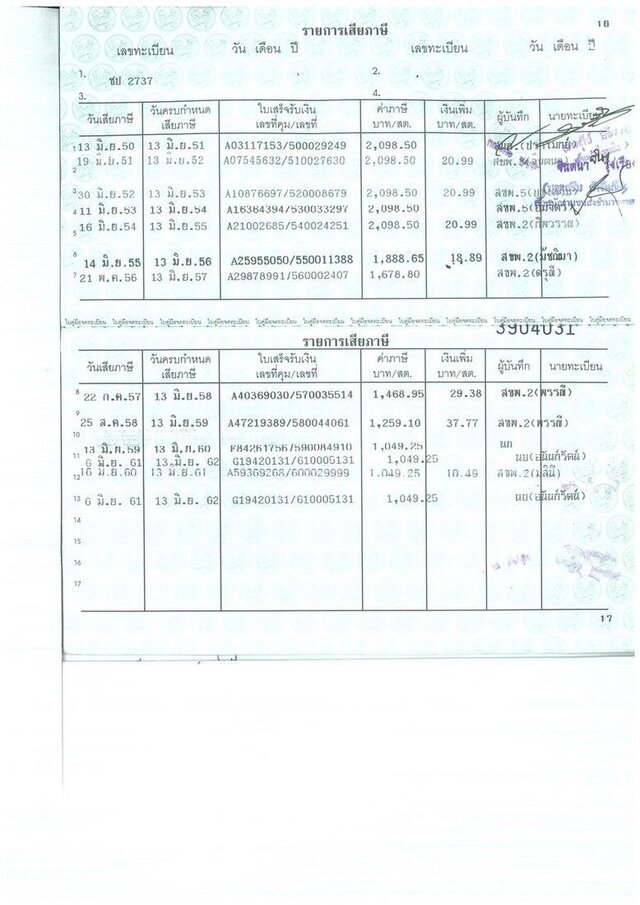 16
รายการเสียภาษี
เลขทะเบียน วัน เดือน ปี เลขทะเบียน วัน เดือน ปี
1. ชป 2737 2.
3. 4.
วันเสียภาษี วันครบกำหนดเสียภาษี ใบเสร็จรับเงิน เลขที่คุม/เลขที่ ค่าภาษี บาท/สต. เงินเพิ่ม บาท/สต. ผู้บันทึก นายทะเบียน
1 13 มิ.ย.50 13 มิ.ย.51 A03117153/500029249 2,098.50
2 19 มิ.ย.51 13 มิ.ย.52 A07545632/510027630 2,098.50 20.99
3 30 มิ.ย.52 13 มิ.ย.53 A10876697/520008679 2,098.50 20.99
4 11 มิ.ย.53 13 มิ.ย.54 A16364394/530033297 2,098.50
5 16 มิ.ย.54 13 มิ.ย.55 A21002685/540024251 2,098.50 20.99 สขพ.2(ทิพวรรณ)
6 14 มิ.ย.55 13 มิ.ย.56 A25955050/550011388 1,888.65 18.89 สขพ.2(มัชฌิมา)
7 21 พ.ค.56 13 มิ.ย.57 A29878991/560002407 1,678.80 สขพ.2(ดรุณี)
ใบคู่มือจดทะเบียน ใบคู่มือจดทะเบียน ใบคู่มือจดทะเบียน ใบคู่มือจดทะเบียน ใบคู่มือจดทะเบียน ใบคู่มือจดทะเบียน ใบคู่มือจดทะเบียน ใบคู่มือจดทะเบียน
3904031
รายการเสียภาษี
วันเสียภาษี วันครบกำหนดเสียภาษี ใบเสร็จรับเงิน เลขที่คุม/เลขที่ ค่าภาษี บาท/สต. เงินเพิ่ม บาท/สต. ผู้บันทึก นายทะเบียน
8 22 ก.ค.57 13 มิ.ย.58 A40369030/570035514 1,468.95 29.38 สขพ.2(พรรณี)
9 25 ส.ค.58 13 มิ.ย.59 A47219389/580044061 1,259.10 37.77 สขพ.2(พรรณี)
10 13 มิ.ย.59 13 มิ.ย.60 F84261756/590084910 1,049.25 นท
11 6 มิ.ย. 61 13 มิ.ย. 62 G19420131/610005131 1,049.25 นบ(อนันก์รัตน์)
12 16 มิ.ย.60 13 มิ.ย.61 A59369268/600029999 1,049.25 10.49 สขพ.2(มลินี)
13 6 มิ.ย. 61 13 มิ.ย. 62 G19420131/610005131 1,049.25 นบ(อนันก์รัตน์)
14
15
16
17
17